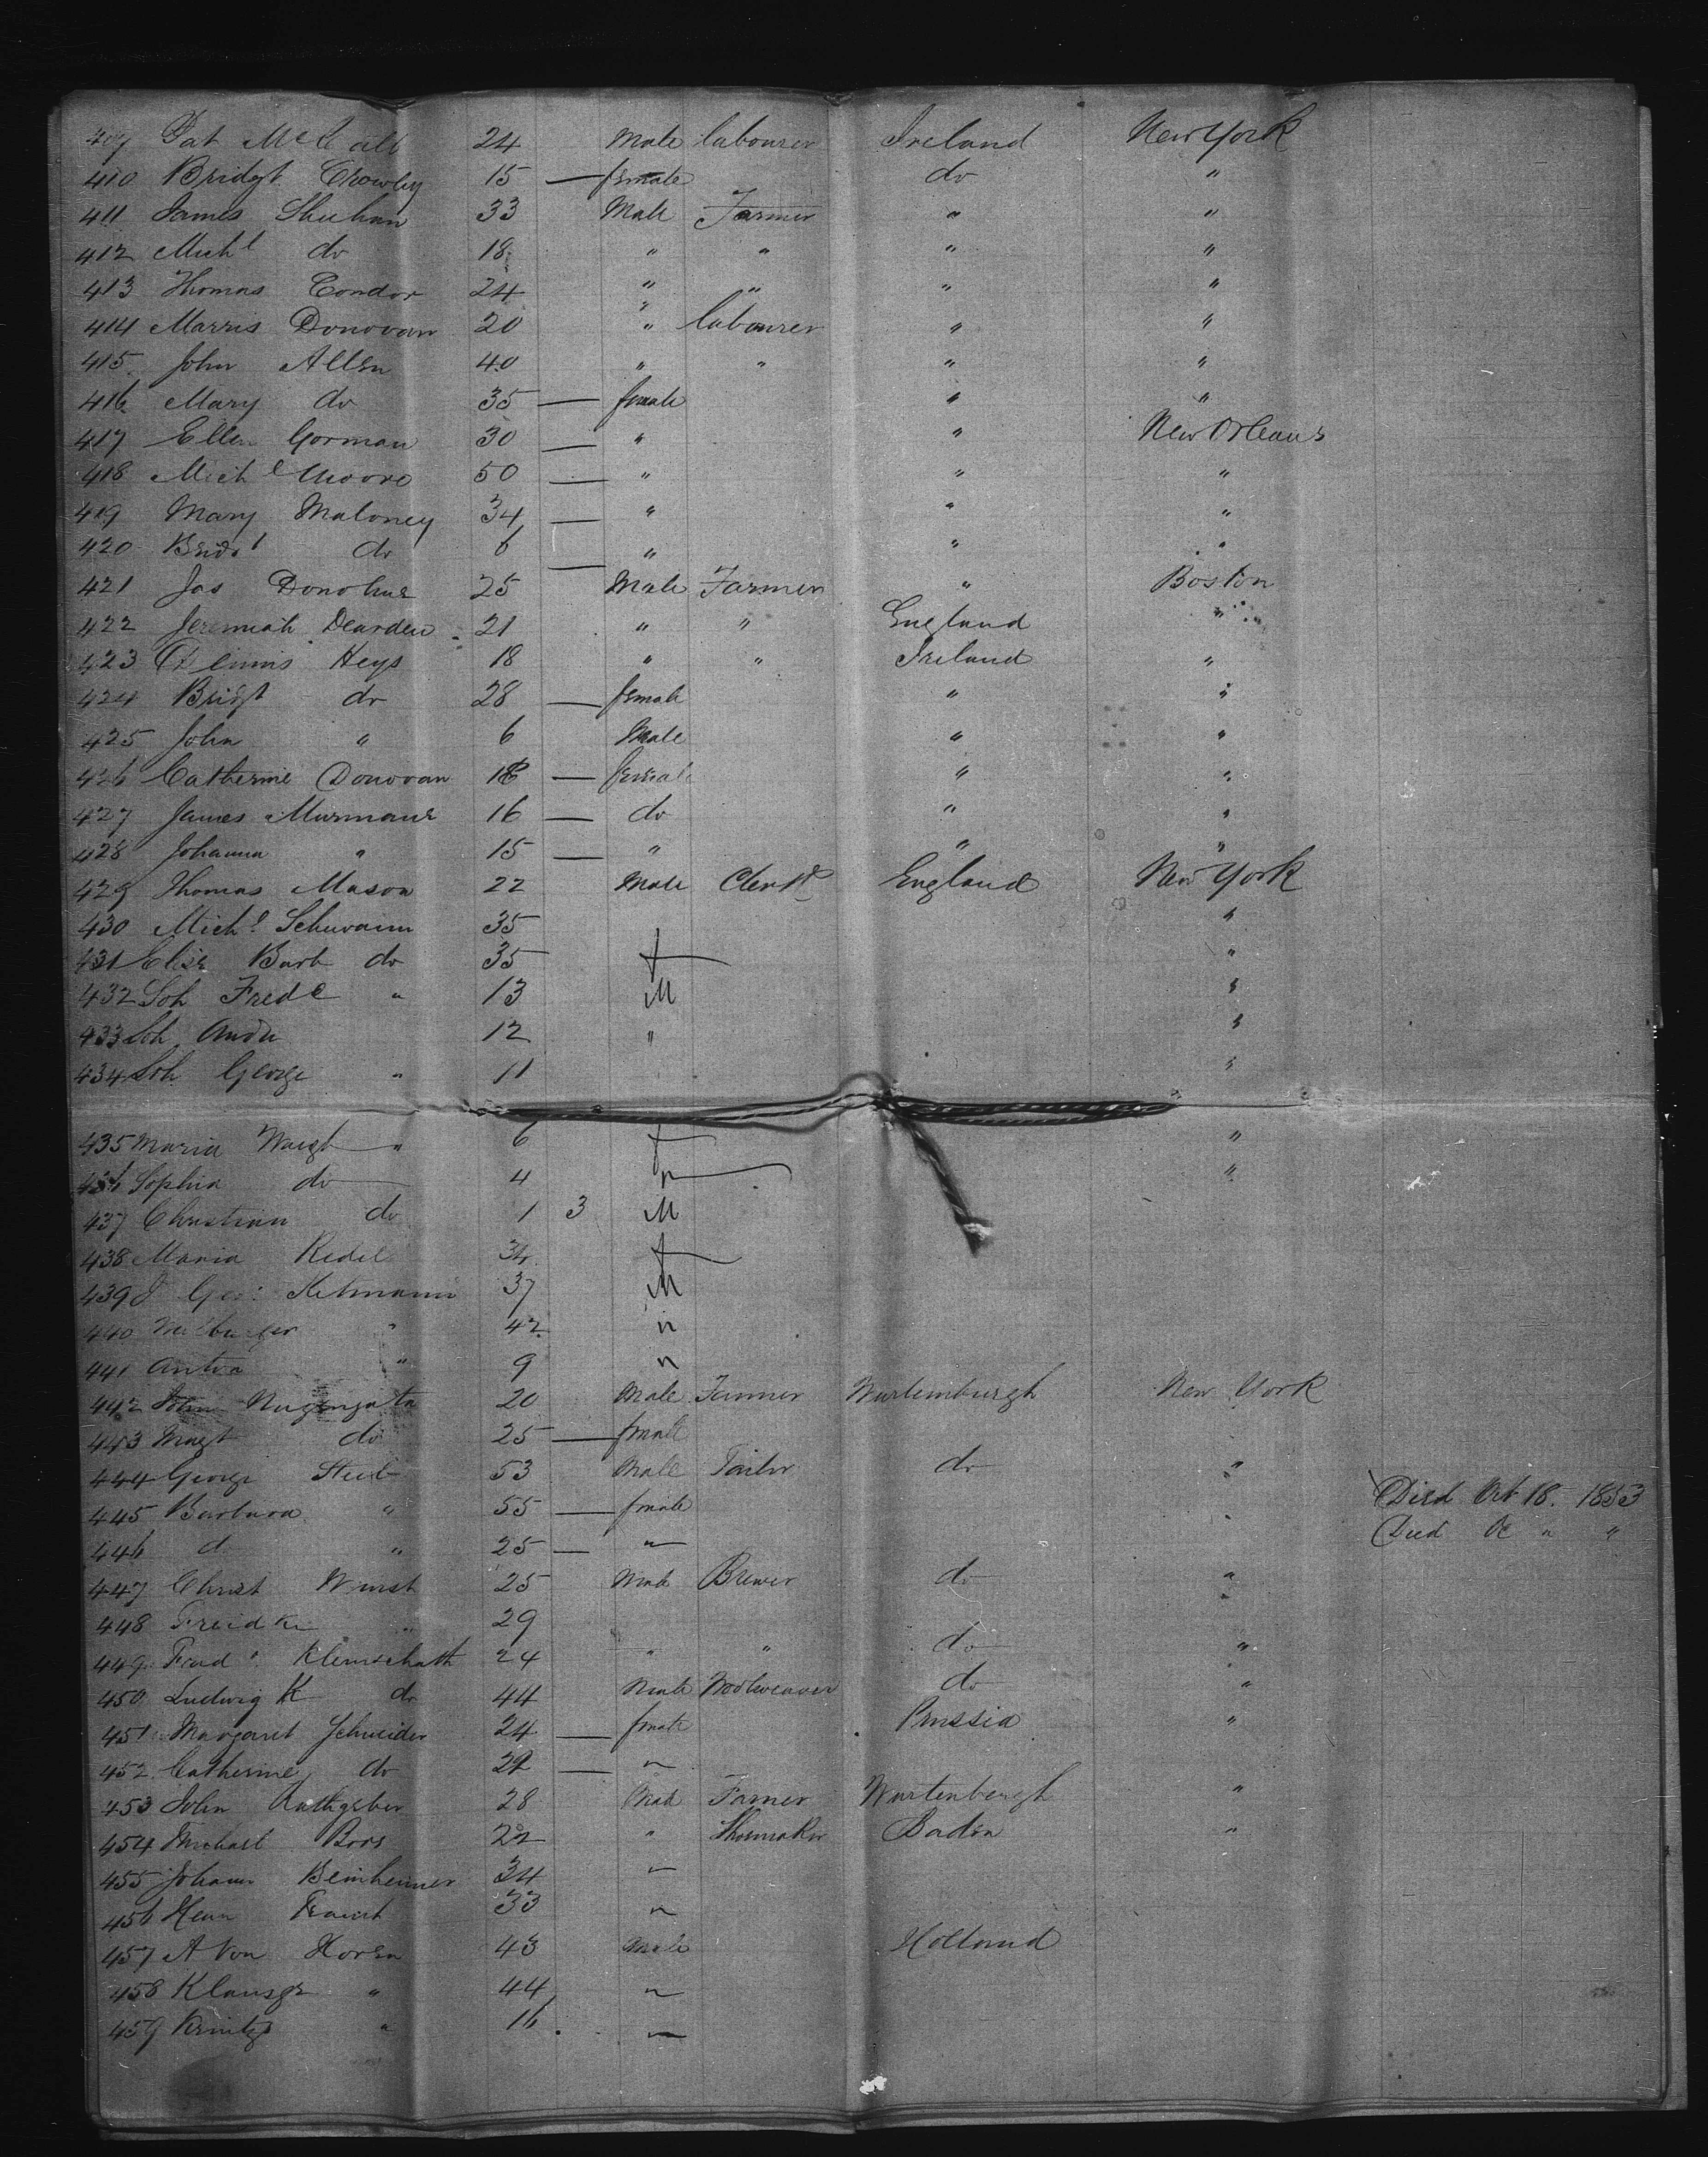 409 Pat McCall 24 Male labourer Ireland New York
410 Bridgt Crowley 15 — female do "
411 James Shuhan 33 Male Farmer " "
412 Michl do 18 " " " "
413 Thomas Condor 24 " " " "
414 Marris Donovan 20 " labourer " "
415 John Allen 40 " " " "
416 Mary do 35 — female " "
417 Ellen Gorman 30 — " " New Orleans
418 Michl Moore 50 — " " "
419 Mary Maloney 34 — " " "
420 Bridt do 6 — " " "
421 Jas Donohue 25 Male Farmer " Boston
422 Jeremiah Dearden 21 " " England "
423 Dennis Heys 18 " " Ireland "
424 Bridgt do 28 — female " "
425 John " 6 Male " "
426 Catherine Donovan 18 — female " "
427 James Murmane 16 — do " "
428 Johanna " 15 — " " "
429 Thomas Mason 22 Male Clerk England New York
430 Michl Schwaim 35 "
431 Elise Barb do 35 f "
432 Joh Fredc " 13 M "
433 Joh Andr 12 " "
434 Joh George " 11 "
435 Maria Waigb " 6 f "
436 Sophia do 4 " "
437 Christian do 1 3 M
438 Maria Redel 34 f
439 J Geo: Ketmann 37 M
440 " 42 "
441 Antva " 9 "
442 John Nugengata 20 Male Farmer Wurtemburgh New York
443 Magt do 25 — fmale
444 George Steeb 53 Male Tailor do "
445 Barbara " 55 — fmale " Died Oct 18. 1853
446 do " 25 — " Died Oc " "
447 Christ Wurst 25 Male Brewer do "
448 Freidke " 29
449 Fred Klemschath 24 " " do "
450 Ludwig K do 44 Male Woolweaver do "
451 Margaret Schneider 24 — fmale Prussia "
452 Catherine do 22 — "
453 John Rathgeber 28 Male Farmer Wurtenbergh "
454 Michael Boos 22 " Shoemaker Baden "
455 Johann Beinheimer 34 "
456 Henn Traut 33 "
457 A Von Horen 43 Male Holland
458 Klausge " 44 "
459 Krintge " 16 "